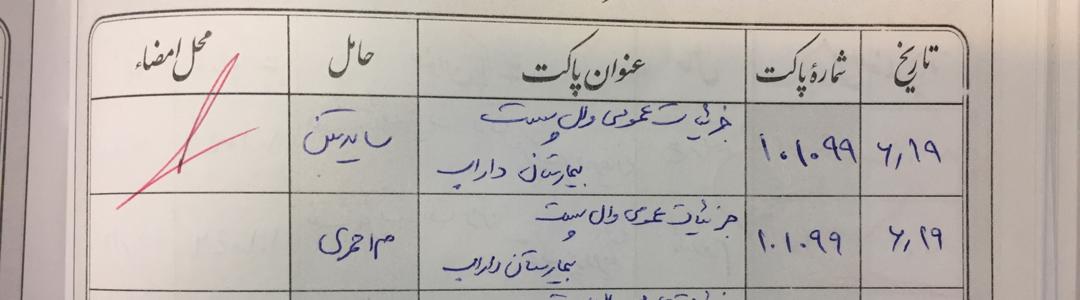 تاریخ شمارهٔ پاکت عنوان پاکت حامل محل امضاء
۶٫۱۹ ۱۰۱۰۹۹ جزئیات عمومی وال پست سایدتکن
بیمارستان داراب
۶٫۲۹ ۱۰۱۰۹۹ جزئیات عمومی وال پست م احمری
بیمارستان داراب